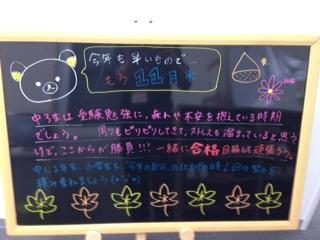 今年も早いもので…
もう11月*
中3生は受験勉強に、疲れや不安を抱えている時期
でしょう。 周りもピリピリしてきて、ストレスも溜まっていると思う
けど、ここからが勝負!!! 一緒に合格目指して頑張ろう。
中1,2年生、小学生も、今年の自分の仕上げの時!日々努力を
積み重ねましょう